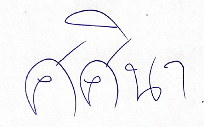 ศศินา